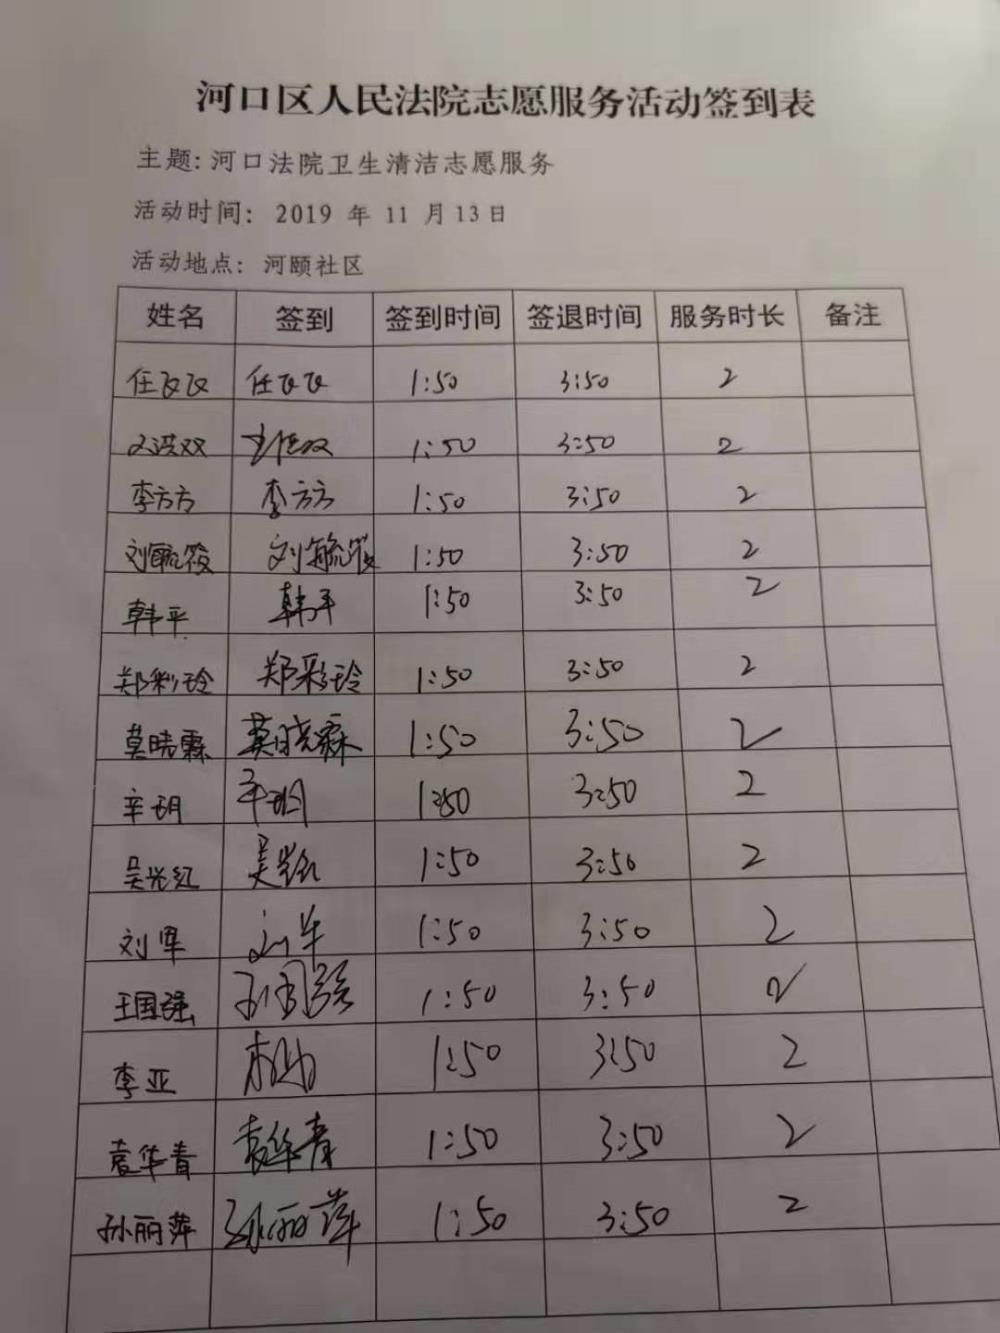 河口区人民法院志愿服务活动签到表
主题: 河口法院卫生清洁志愿服务
活动时间: 2019 年 11 月 13 日
活动地点: 河颐社区
姓名 签到 签到时间 签退时间 服务时长 备注
任飞飞 任飞飞 1:50 3:50 2
1:50 3:50 2
李方方 李方方 1:50 3:50 2
刘毓筱 刘毓筱 1:50 3:50 2
韩平 韩平 1:50 3:50 2
郑彩玲 郑彩玲 1:50 3:50 2
莫晓霖 莫晓霖 1:50 3:50 2
辛玥 辛玥 1:50 3:50 2
吴光红 1:50 3:50 2
刘军 刘军 1:50 3:50 2
王国强 王国强 1:50 3:50 2
李亚 1:50 3:50 2
袁华青 袁华青 1:50 3:50 2
孙丽萍 孙丽萍 1:50 3:50 2